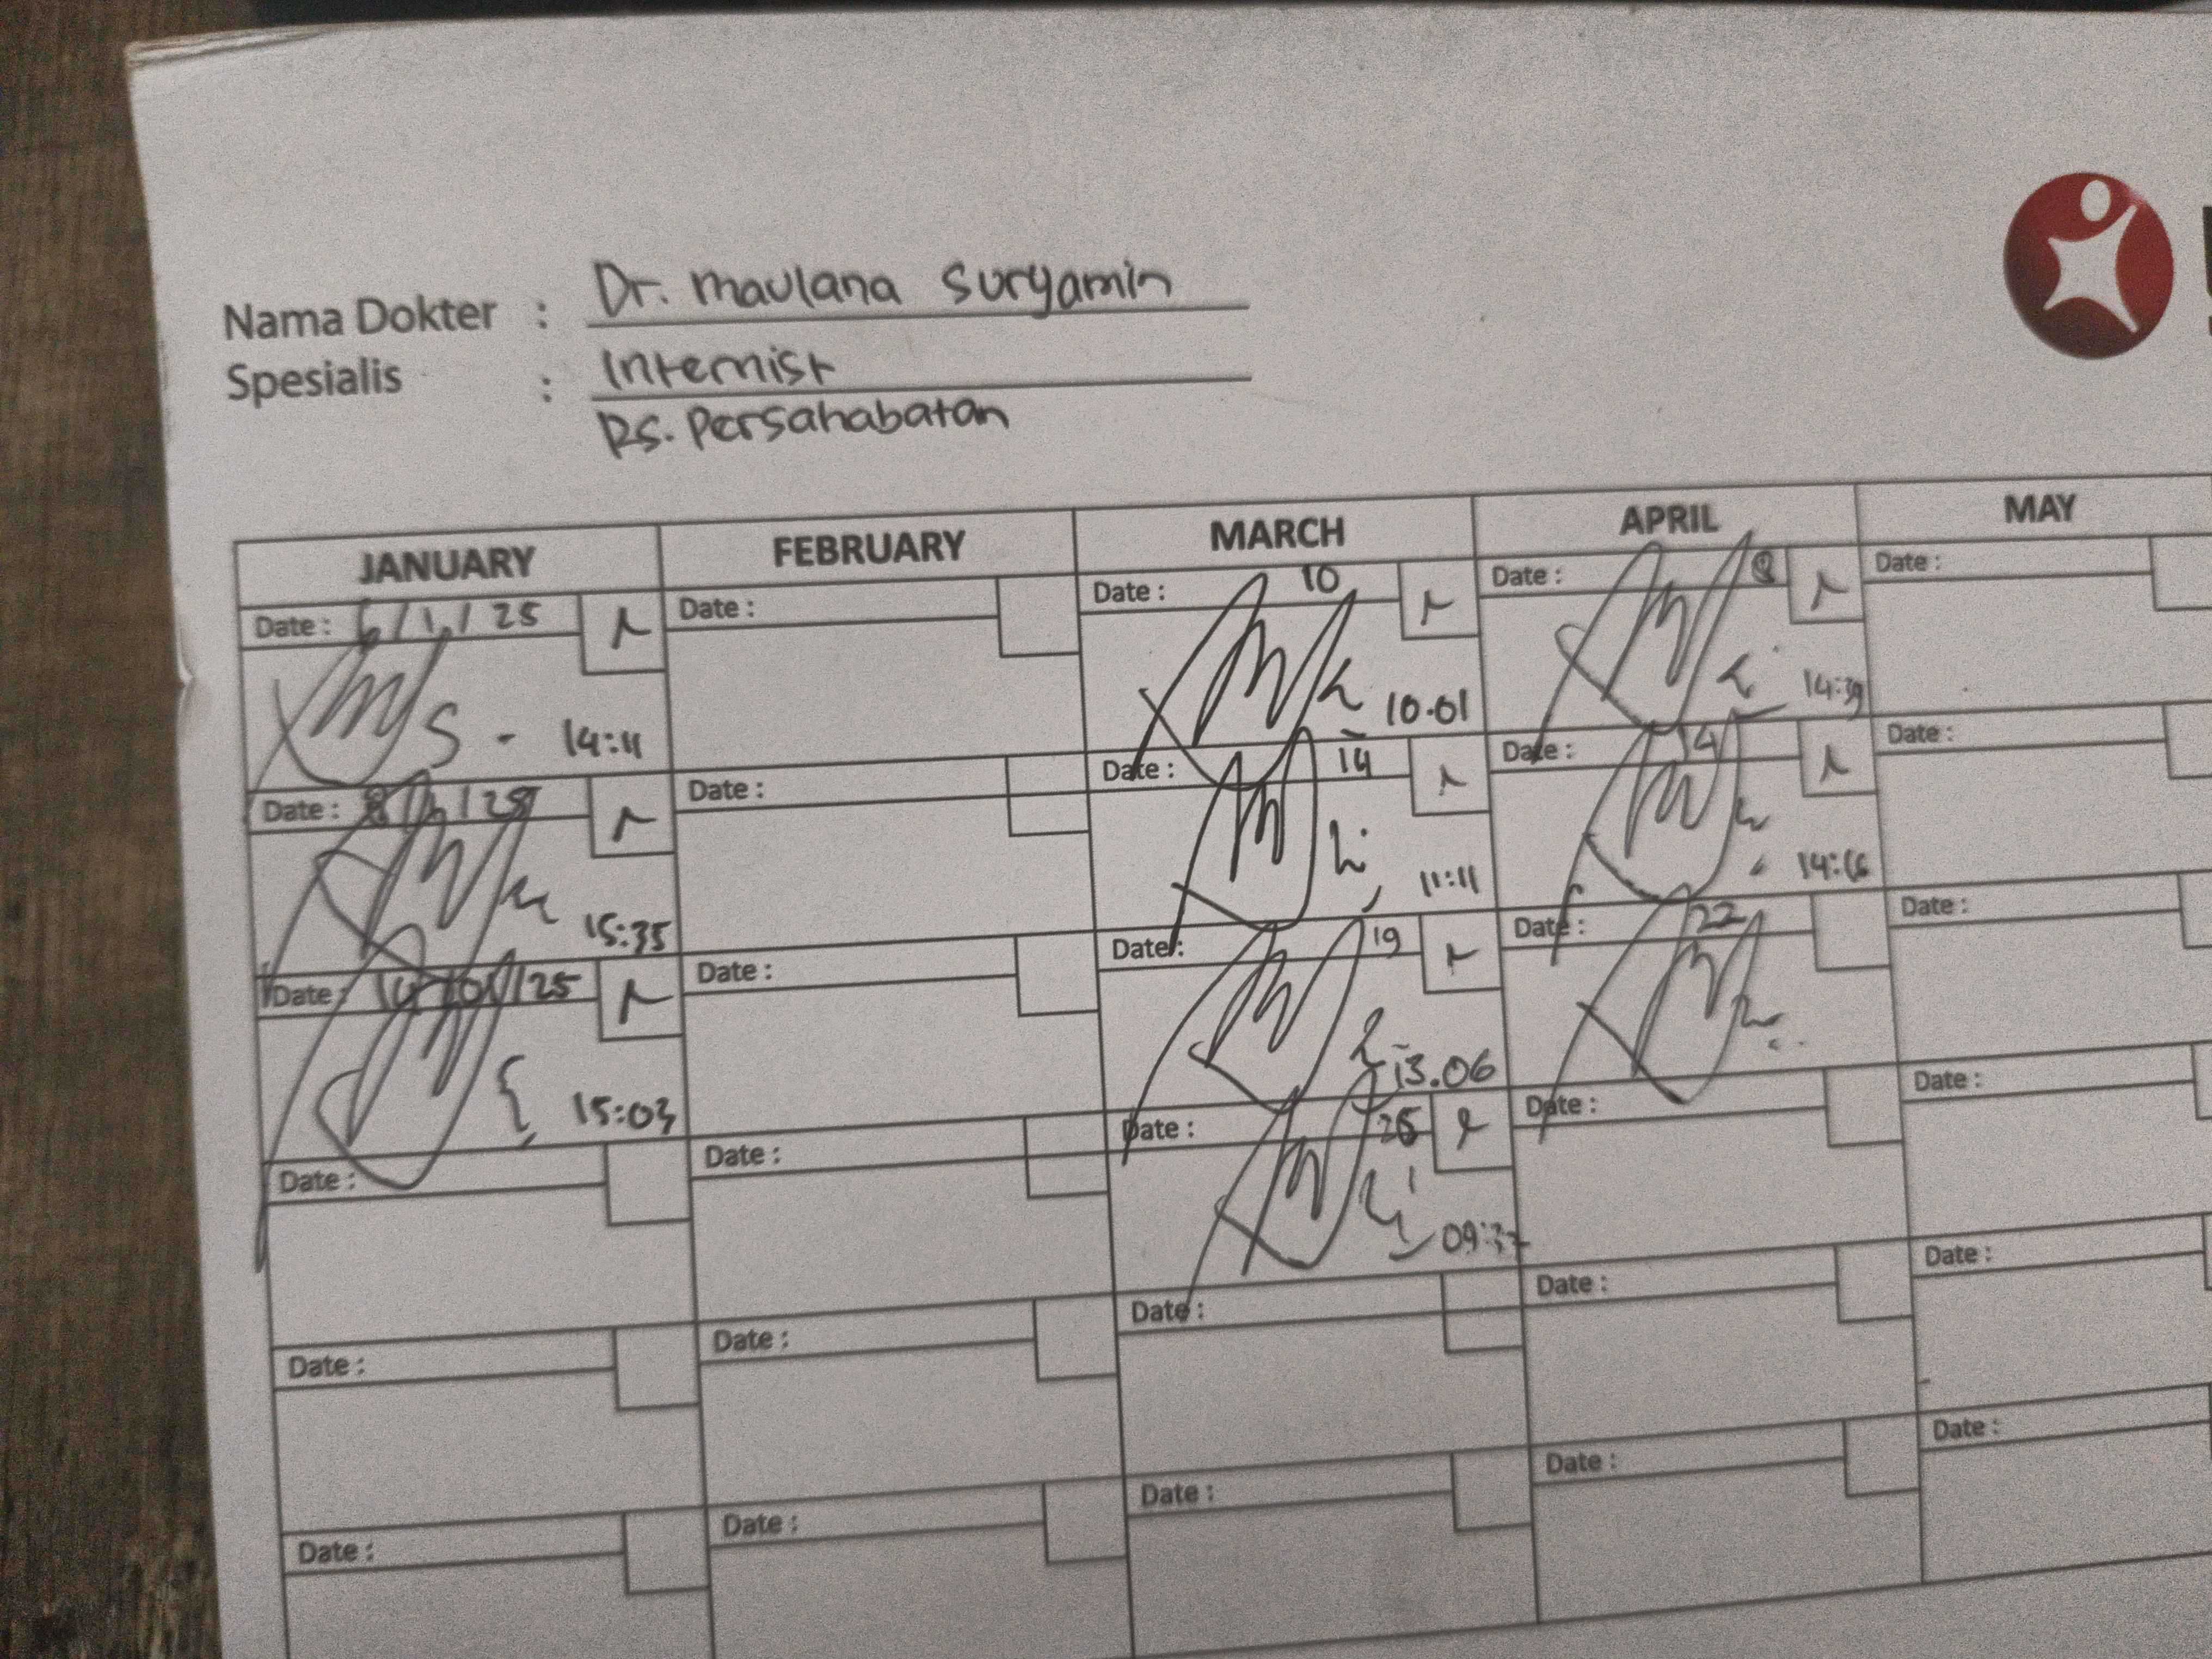 Nama Dokter : Dr. Maulana Suryamin
Spesialis : Internist
RS. Persahabatan
JANUARY FEBRUARY MARCH APRIL MAY
Date : 6/1/25 Date : Date : 10 Date : 8 Date :
14:11 10.01 14:39
Date : 8/1/25 Date : Date : 14 Date : 14 Date :
15:35 11:11 14:16
Date : 14/01/25 Date : Date : 19 Date : 22 Date :
15:03 13.06
Date : Date : Date : Date : Date :
09:37
Date : Date : Date : Date : Date :
Date : Date : Date : Date : Date :